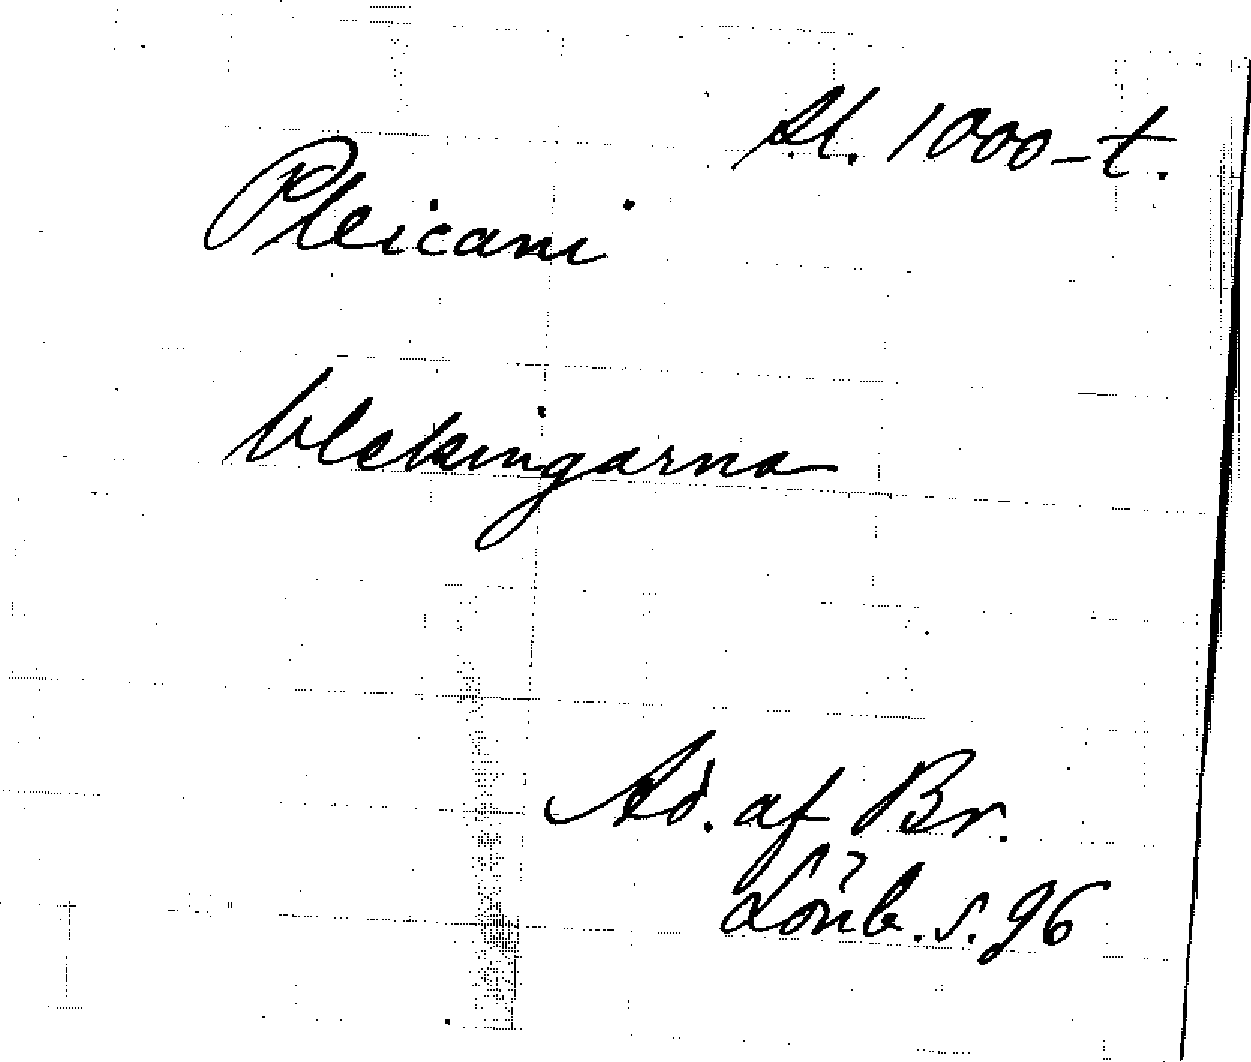 Sl. 1000-t.
Pleicani
blekingarna
Ad. af Br.
Lönb. s. 96